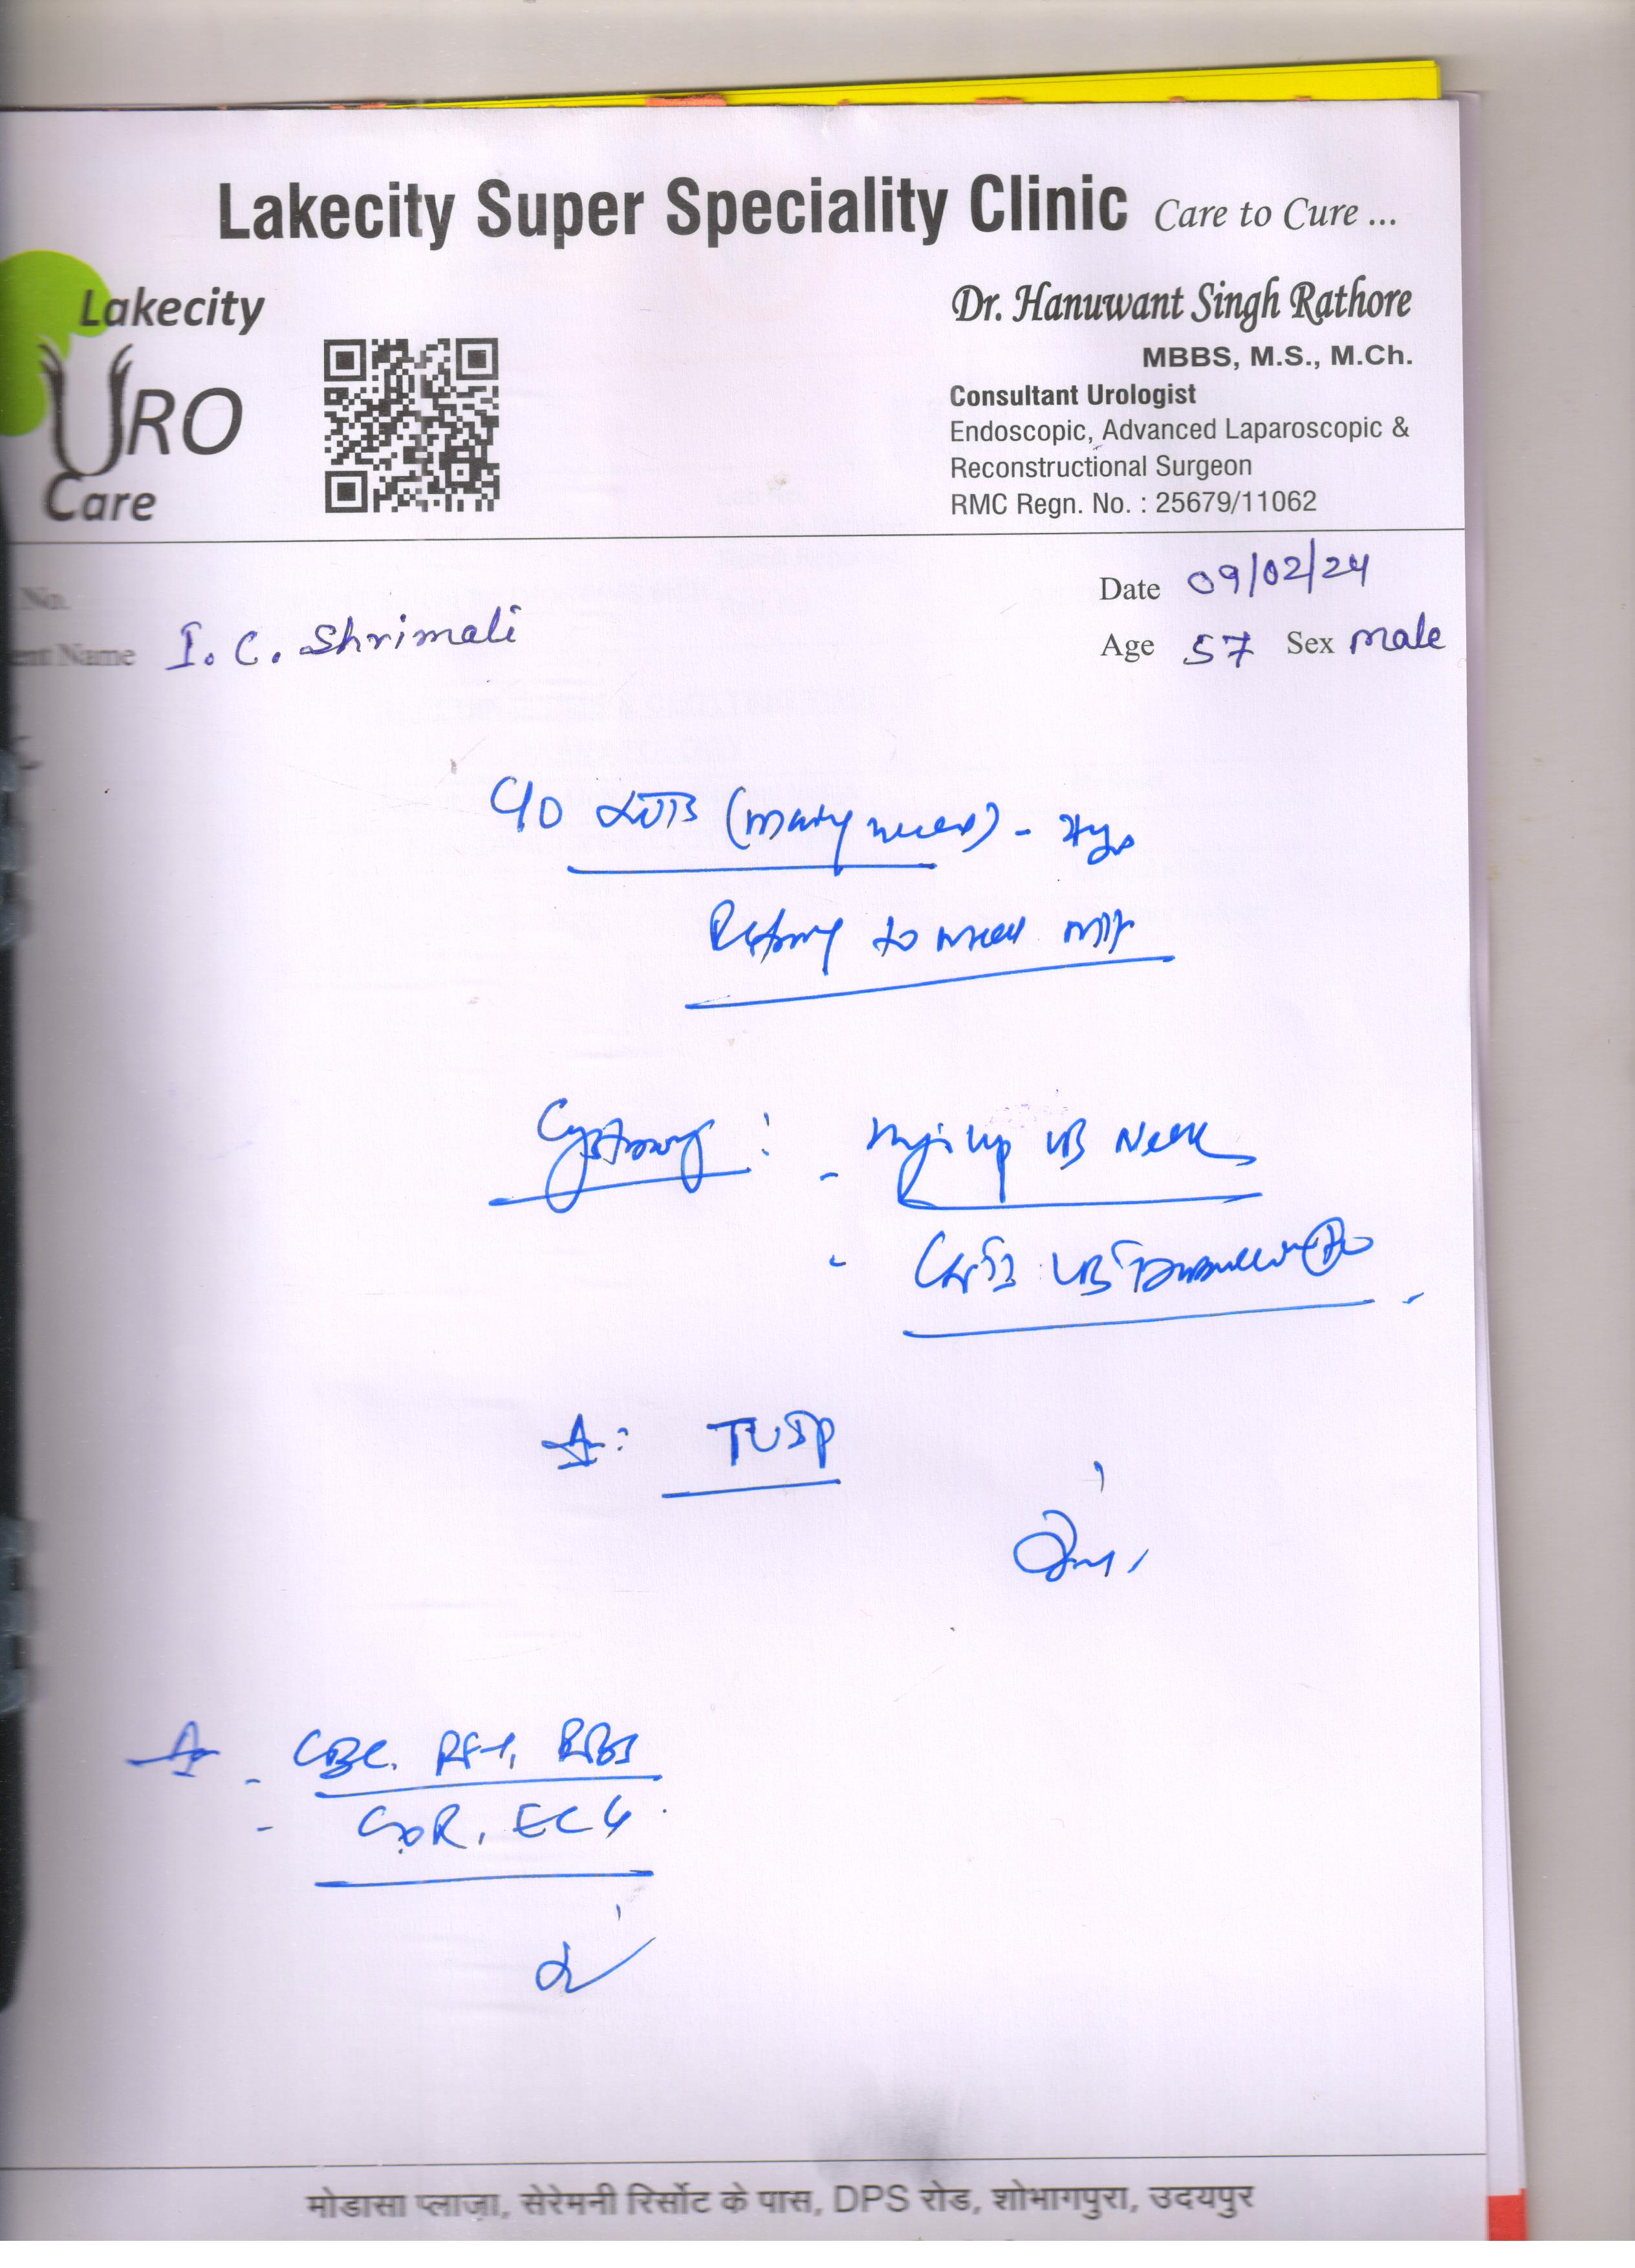 Lakecity Super Speciality Clinic Care to Cure ...
Lakecity
URO
Care
Dr. Hanuwant Singh Rathore
MBBS, M.S., M.Ch.
Consultant Urologist
Endoscopic, Advanced Laparoscopic &
Reconstructional Surgeon
RMC Regn. No. : 25679/11062
No.
Date 09/02/24
ent Name I. C. Shrimali
Age 57 Sex male
C/O LUTS
to
Cystoscopy :
- UB Neck
- UB
A: TUIP
A - CBC, RFT, RBS
- CXR, ECG
मोडासा प्लाज़ा, सेरेमनी रिर्सोट के पास, DPS रोड, शोभागपुरा, उदयपुर